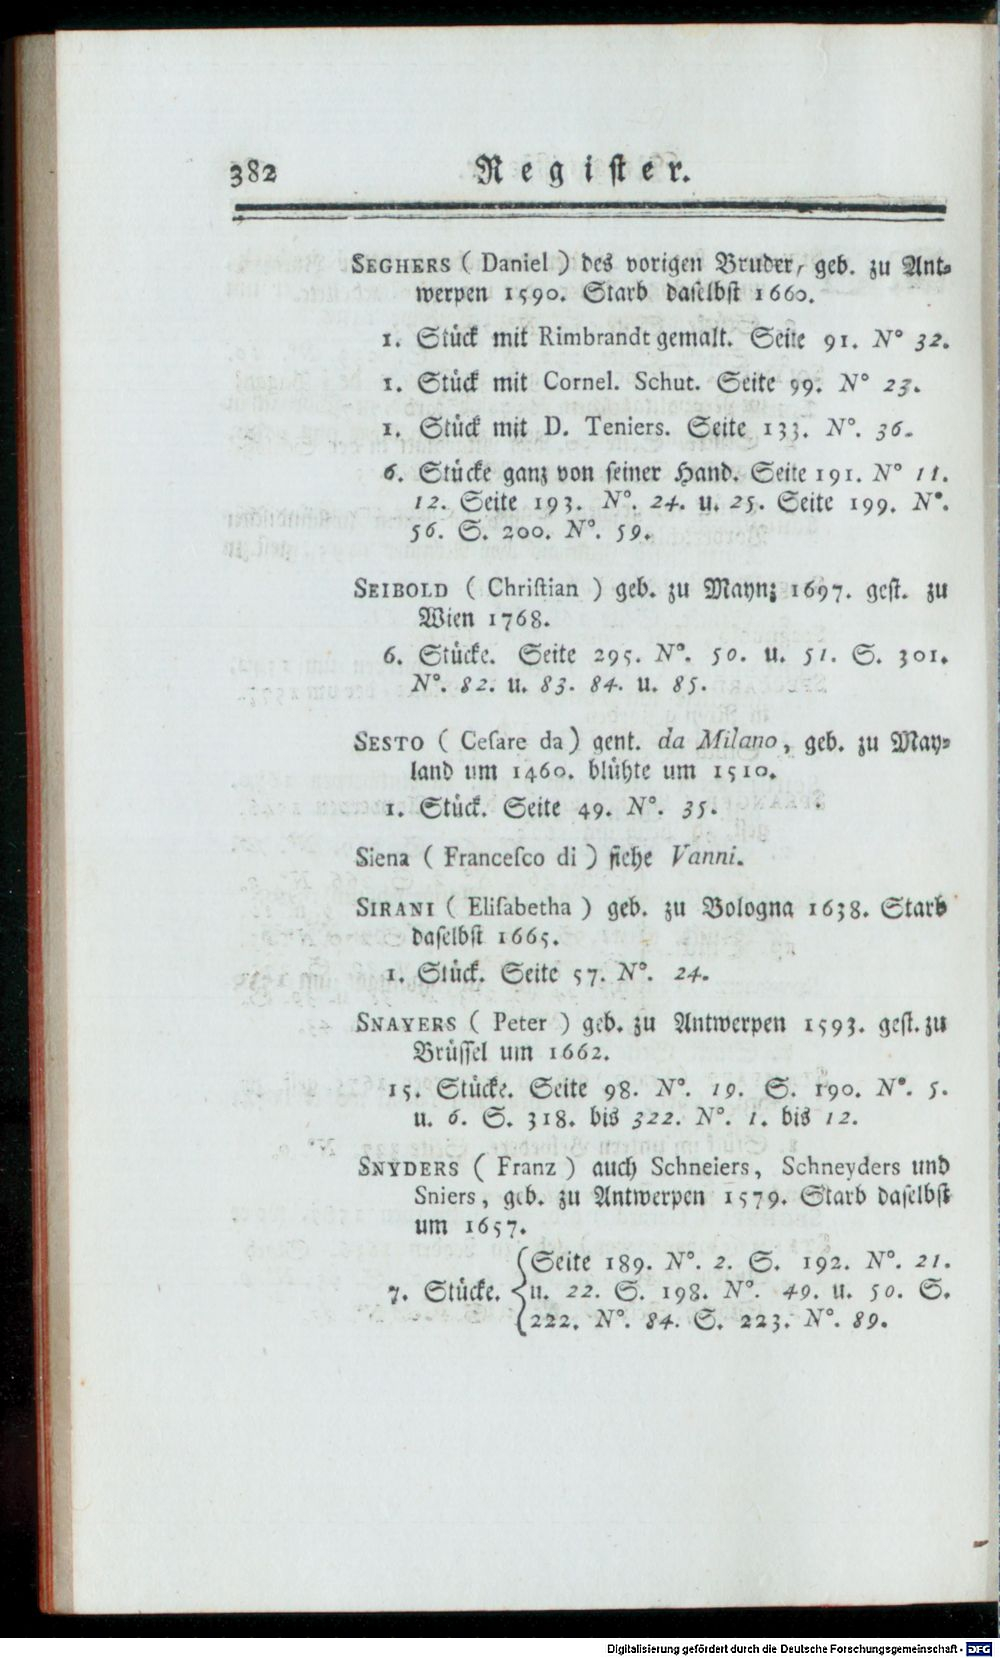 382 Regiſter.
SEGHERS ( Daniel ) des vorigen Bruder, geb. zu Ant-
werpen 1590. Starb daſelbſt 1660.
1. Stück mit Rimbrandt gemalt. Seite 91. N° 32.
1. Stück mit Cornel. Schut. Seite 99. N° 23.
1. Stück mit D. Teniers. Seite 133. N°. 36.
6. Stücke ganz von ſeiner Hand. Seite 191. N° 11.
12. Seite 193. N°. 24. u. 25. Seite 199. N°.
56. S. 200. N°. 59.
SEIBOLD ( Chriſtian ) geb. zu Maynz 1697. geſt. zu
Wien 1768.
6. Stücke. Seite 295. N°. 50. u. 51. S. 301.
N°. 82. u. 83. 84. u. 85.
SESTO ( Ceſare da ) gent. da Milano, geb. zu May-
land um 1460. blühte um 1510.
1. Stück. Seite 49. N°. 35.
Siena ( Franceſco di ) ſiehe Vanni.
SIRANI ( Eliſabetha ) geb. zu Bologna 1638. Starb
daſelbſt 1665.
1. Stück. Seite 57. N°. 24.
SNAYERS ( Peter ) geb. zu Antwerpen 1593. geſt. zu
Brüſſel um 1662.
15. Stücke. Seite 98. N°. 19. S. 190. N°. 5.
u. 6. S. 318. bis 322. N°. 1. bis 12.
SNYDERS ( Franz ) auch Schneiers, Schneyders und
Sniers, geb. zu Antwerpen 1579. Starb daſelbſt
um 1657.
Seite 189. N°. 2. S. 192. N°. 21.
7. Stücke. u. 22. S. 198. N°. 49. u. 50. S.
222. N°. 84. S. 223. N°. 89.
Digitalisierung gefördert durch die Deutsche Forschungsgemeinschaft - DFG